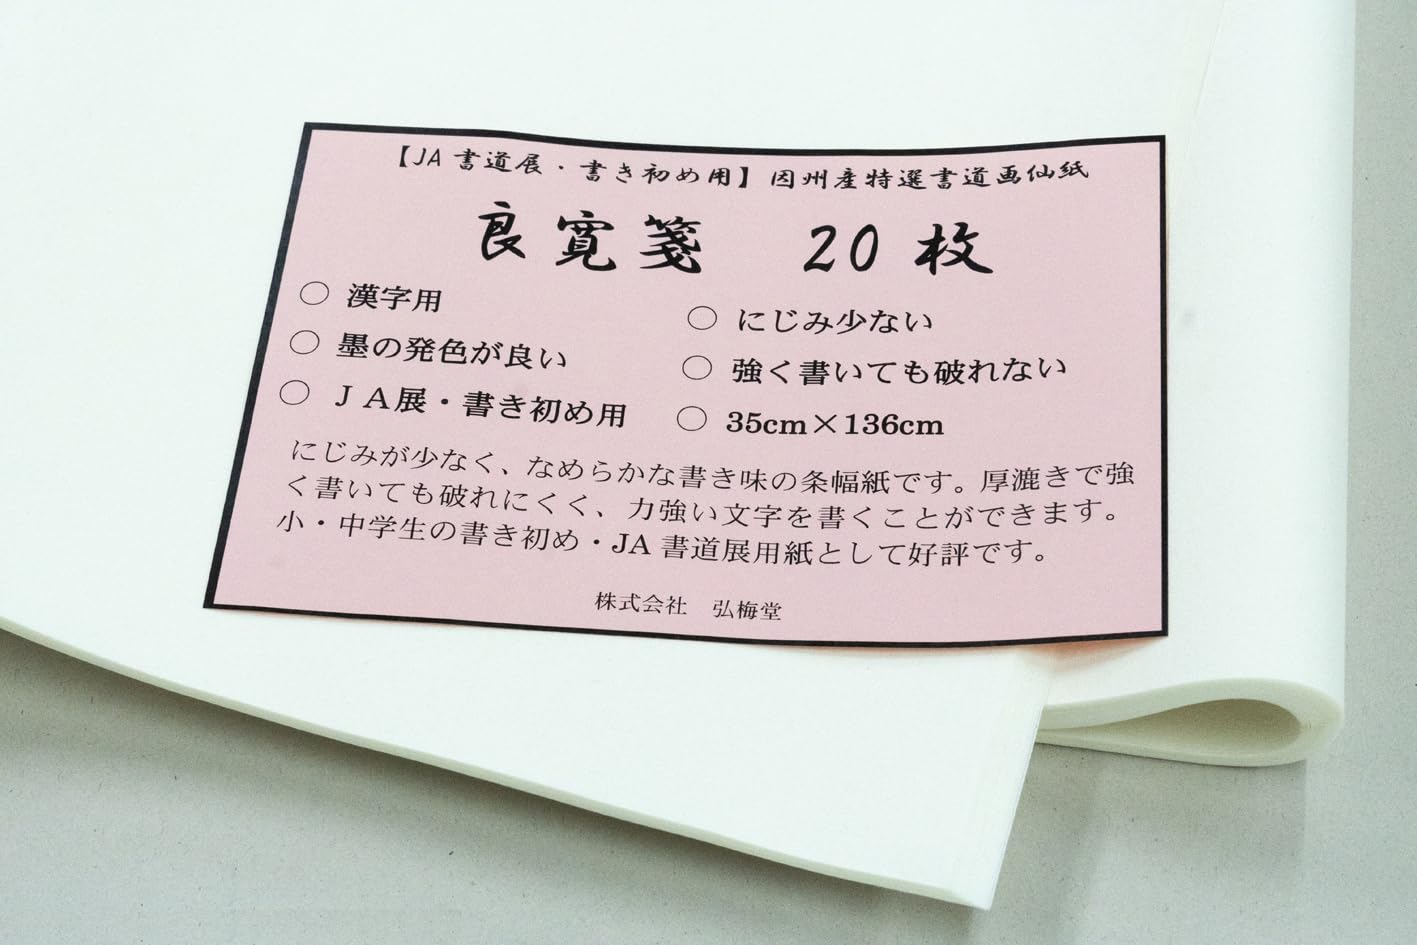 【JA 書道展・書き初め用】因州産特選書道画仙紙
良寛箋　20 枚
○ 漢字用
○ 墨の発色が良い
○ ＪＡ展・書き初め用
○ にじみ少ない
○ 強く書いても破れない
○ 35cm×136cm
にじみが少なく、なめらかな書き味の条幅紙です。厚漉きで強
く書いても破れにくく、力強い文字を書くことができます。
小・中学生の書き初め・JA 書道展用紙として好評です。
株式会社　弘梅堂